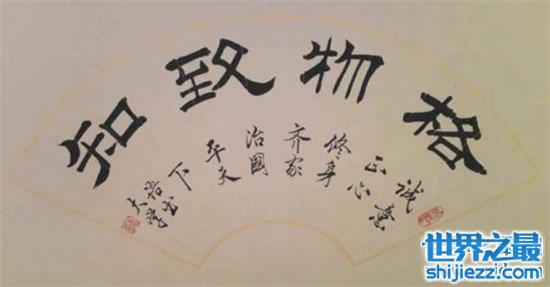 格物致知
诚意
正心
修身
齐家
治國
平天
下
语出
大学
世界之最
shijiezz.com